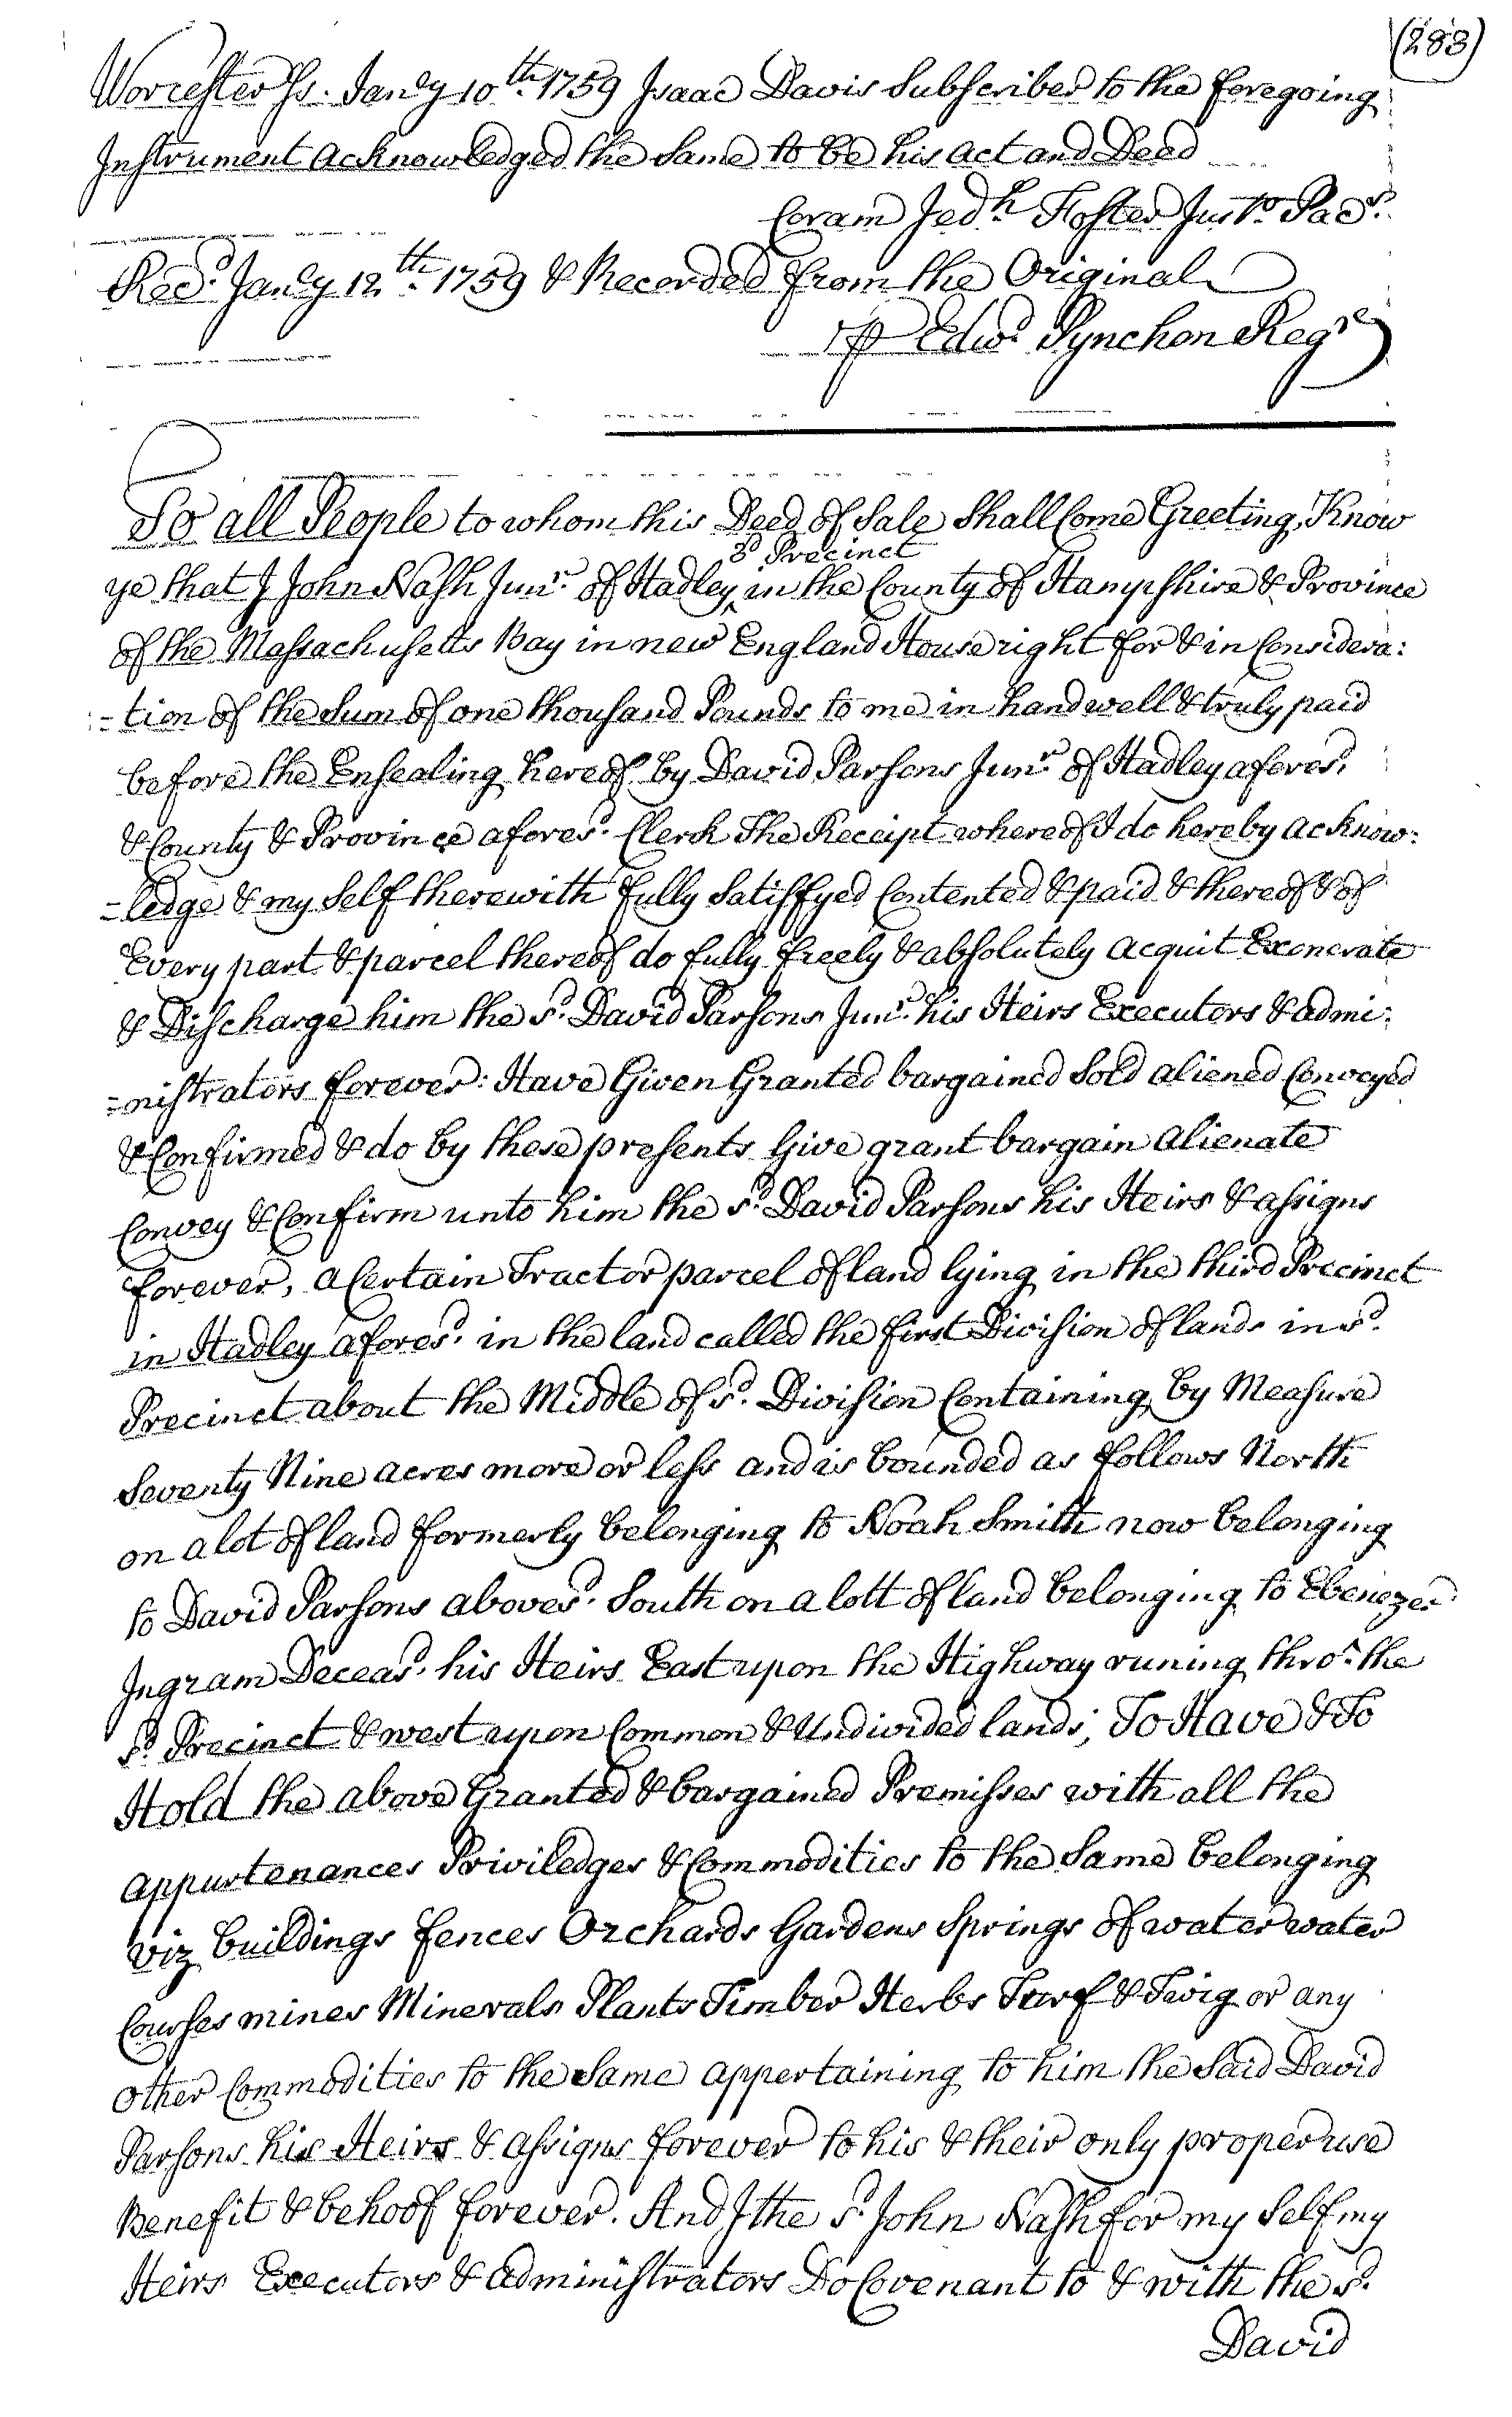 (283)
Worcester Ss. Jany 10th. 1759 Isaac Davis Subscriber to the foregoing
Instrument acknowledged the Same to be his act and Deed
Coram Jedh. Foster Justo. Pacs.
Recd. Jany 12th. 1759 & Recorded from the Original
⅌ Edwd Pynchon Regr
To all People to whom this Deed of Sale Shall Come Greeting, Know
3d Precinct
ye that I John Nash Junr. of Hadley ‸ in the County of Hampshire & Province
of the Massachusetts Bay in new England Houseright for & in Considera:
=tion of the Sum of one thousand Pounds to me in hand well & truly paid
before the Ensealing hereof by David Parsons Junr. of Hadley aforesd.
& County & Province aforesd. Clerk The Receipt whereof I do hereby acknow:
=ledge & my Self therewith fully Satisfyed Contented & paid & thereof & of
Every part & parcel thereof do fully freely & absolutely acquit Exonerate
& Discharge him the sd. David Parsons Junr. his Heirs Executors & admi:
=nistrators forever: Have Given Granted bargained Sold aliened Conveyed
& Confirmed & do by these presents Give grant bargain alienate
Convey & Confirm unto him the sd. David Parsons his Heirs & assigns
forever, a Certain Tract or parcel of land lying in the third Precinct
in Hadley aforesd. in the land called the first Division of lands in sd.
Precinct about the Middle of sd. Division Containing by Measure
Seventy Nine acres more or less and is bounded as follows North
on a lot of land formerly belonging to Noah Smith now belonging
to David Parsons abovesd. South on a lott of land belonging to Ebenezer
Ingram Deceasd. his Heirs East upon the Highway runing thro. the
sd. Precinct & west upon Common & Undivided lands; To Have & To
Hold the above Granted & bargained Premisses with all the
appurtenances Priviledges & Commodities to the Same belonging
viz buildings fences Orchards Gardens Springs of water water
Courses mines Minerals Plants Timber Herbs Turf & Twig or any
other Commodities to the Same appertaining to him the Said David
Parsons his Heirs & assigns forever to his & their only proper use
Benefit & behoof forever. And I the sd. John Nash for my Self my
Heirs Executors & administrators Do Covenant to & with the sd.
David